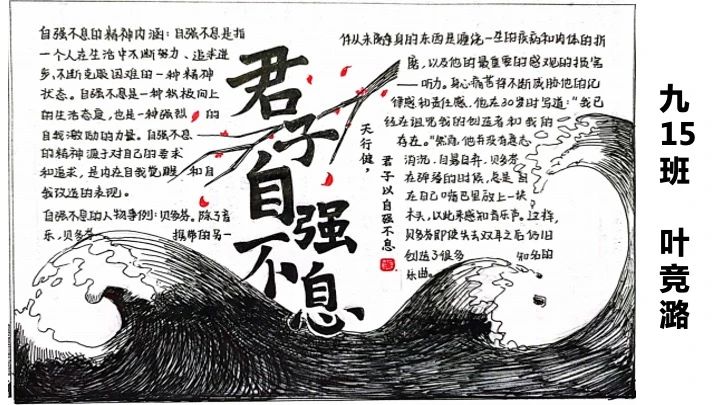 自强不息的精神内涵：自强不息是指
一个人在生活中不断努力、追求进
步，不断克服困难的一种精神
状态。自强不息是一种积极向上
的生活态度，也是一种强烈的
自我激励的力量。自强不息
的精神源于对自己的要求
和追求，是内在自我觉醒和自
我改造的表现。
自强不息的人物事例：贝多芬。除了音
乐，贝多芬携带的另一
君子
自强
不息
天行健，
君子以自强不息
件从未离身的东西是缠绕一生的疾病和肉体的折
磨，以及他的最重要的感观的损害
——听力。身心痛苦将不断威胁他的纪
律感和责任感，他在30岁时写道："我已
经在诅咒我的创造者和我的
存在。"然而，他并没有意志
消沉，自暴自弃，贝多芬
在弹琴的时候，总是
在自己嘴巴里放上一块
木头，以此来感知音乐声。这样，
贝多芬即使失去双耳之后仍旧
创造了很多知名的
乐曲。
九15班 叶竞潞